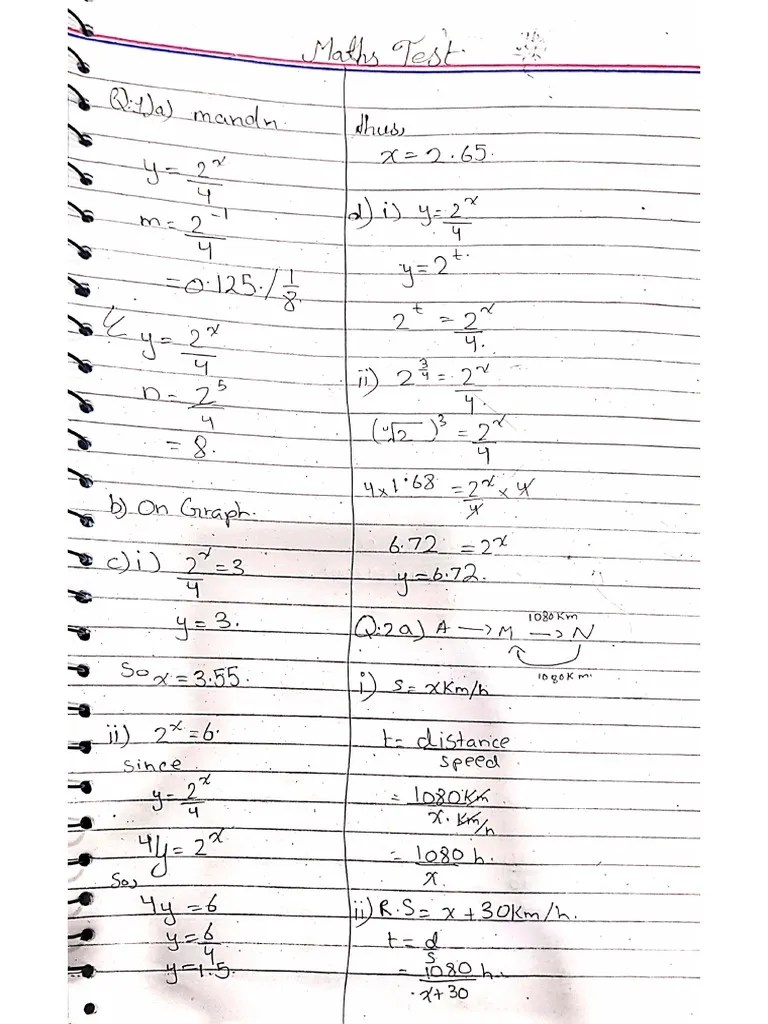 Maths Test
Q.1)a) m and n.
y = 2^x/4
m = 2^-1/4
= 0.125 / 1/8.
y = 2^x/4
n = 2^5/4
= 8.
b) On Graph.
c) i) 2^x/4 = 3
y = 3.
So x = 3.55.
ii) 2^x = 6.
since
y = 2^x/4
4y = 2^x
So,
4y = 6
y = 6/4
y = 1.5.
thus,
x = 2.65.
d) i) y = 2^x/4
y = 2^t.
2^t = 2^x/4.
ii) 2^3/4 = 2^x/4.
(∜2)^3 = 2^x/4
4 x 1.68 = 2^x/4 x 4
6.72 = 2^x
y = 6.72.
1080 Km
Q.2 a) A → M → N
1080 Km.
i) S = x Km/h
t = distance/speed
= 1080 Km/x. Km/h
= 1080/x h.
ii) R.S = x + 30 Km/h.
t = d/s
= 1080/x+30 h.